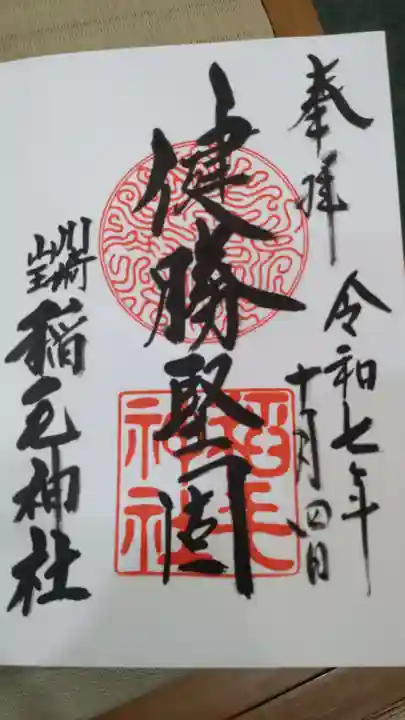 奉拝
令和七年
十月四日
健勝堅固
川崎
山王
稲毛神社
稲毛
神社